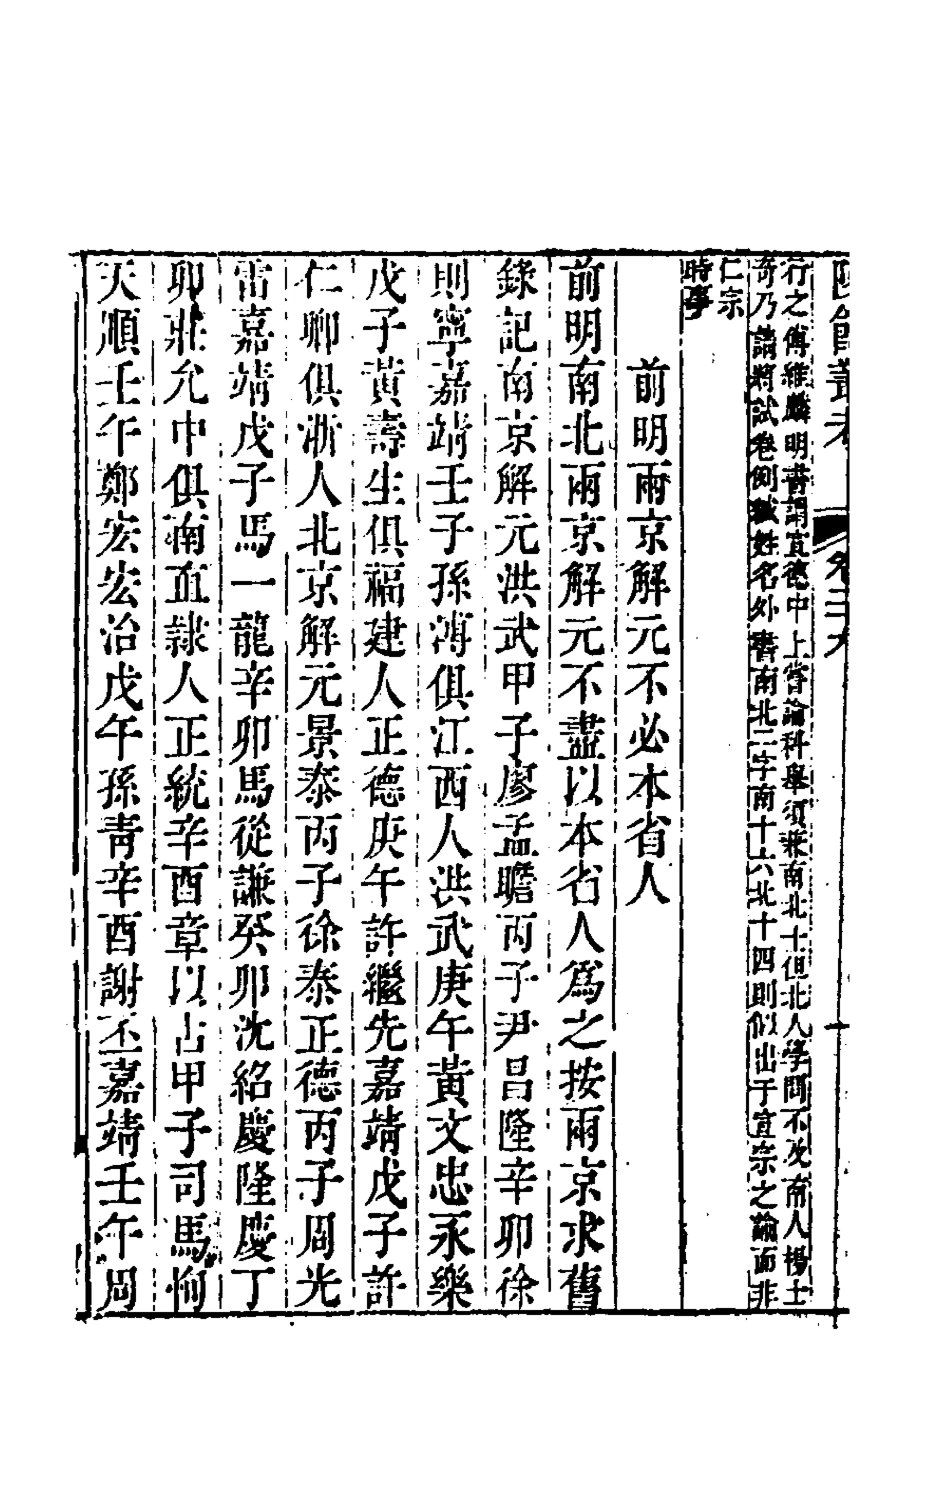 陔餘叢考 卷二十九
行之傅維鱗明書謂宣德中上嘗論科舉須兼南北士但北人學問不及南人楊士
奇乃請將試卷例緘姓名外書南北二字南十六北十四則似出于宣宗之論而非
仁宗
時事
前明兩京解元不必本省人
前明南北兩京解元不盡以本省人爲之按兩京求舊
錄記南京解元洪武甲子廖孟瞻丙子尹昌隆辛卯徐
則寧嘉靖壬子孫溥俱江西人洪武庚午黃文忠永樂
戊子黃壽生俱福建人正德庚午許繼先嘉靖戊子許
仁卿俱浙人北京解元景泰丙子徐泰正德丙子周光
宙嘉靖戊子馬一龍辛卯馬從謙癸卯沈紹慶隆慶丁
卯莊允中俱南直隸人正統辛酉章以占甲子司馬恂
天順壬午鄭宏宏治戊午孫青辛酉謝丕嘉靖壬午周